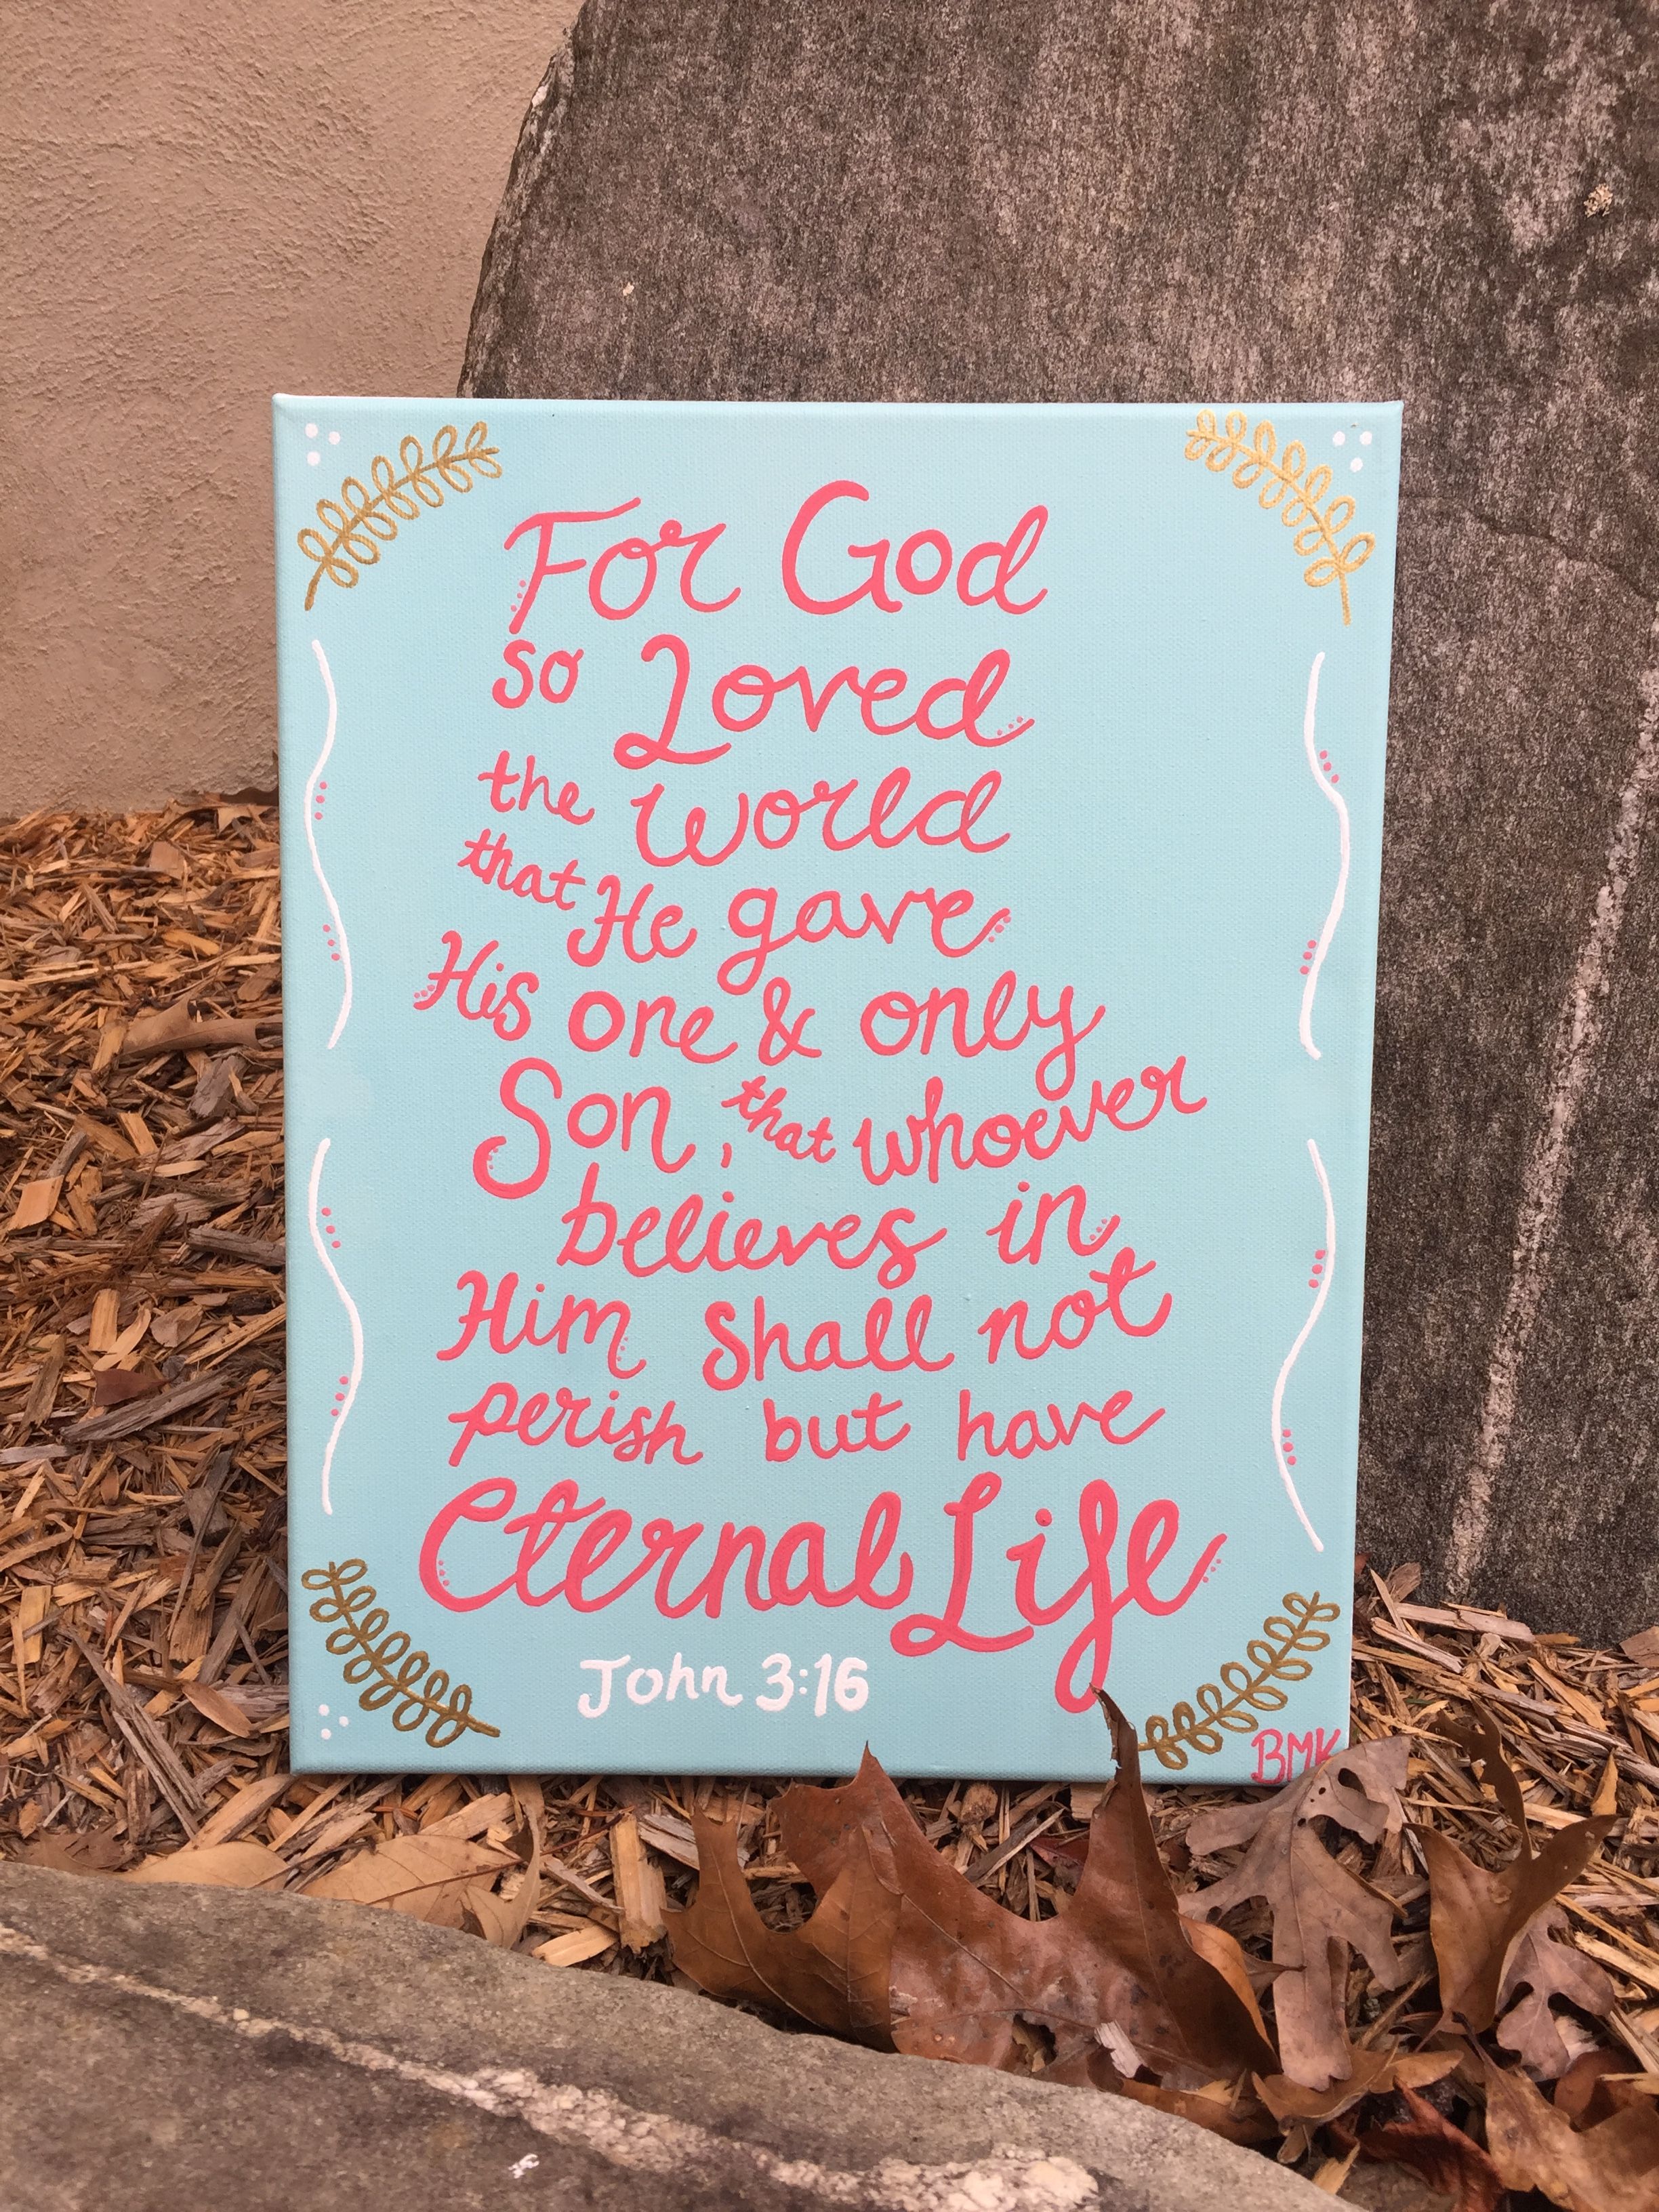 For God
so Loved
the world
that He gave
His one & only
Son, that whoever
believes in
Him shall not
perish but have
Eternal Life
John 3:16
BMK